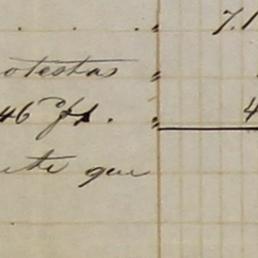 . . . " 7.1
otestas "
46 ps. " 4
ete que